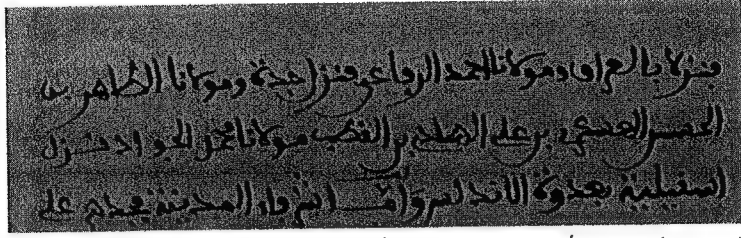 فنزلا بالعراق ومولانا احمد الرفاعي فنزل جدة ومولانا الطاهر بن
الحسن العسكري بن علي الصالح بن القطب مولانا محمد الجواد فنزل
اشبيلية بعدوة الاندلس المدينة علي